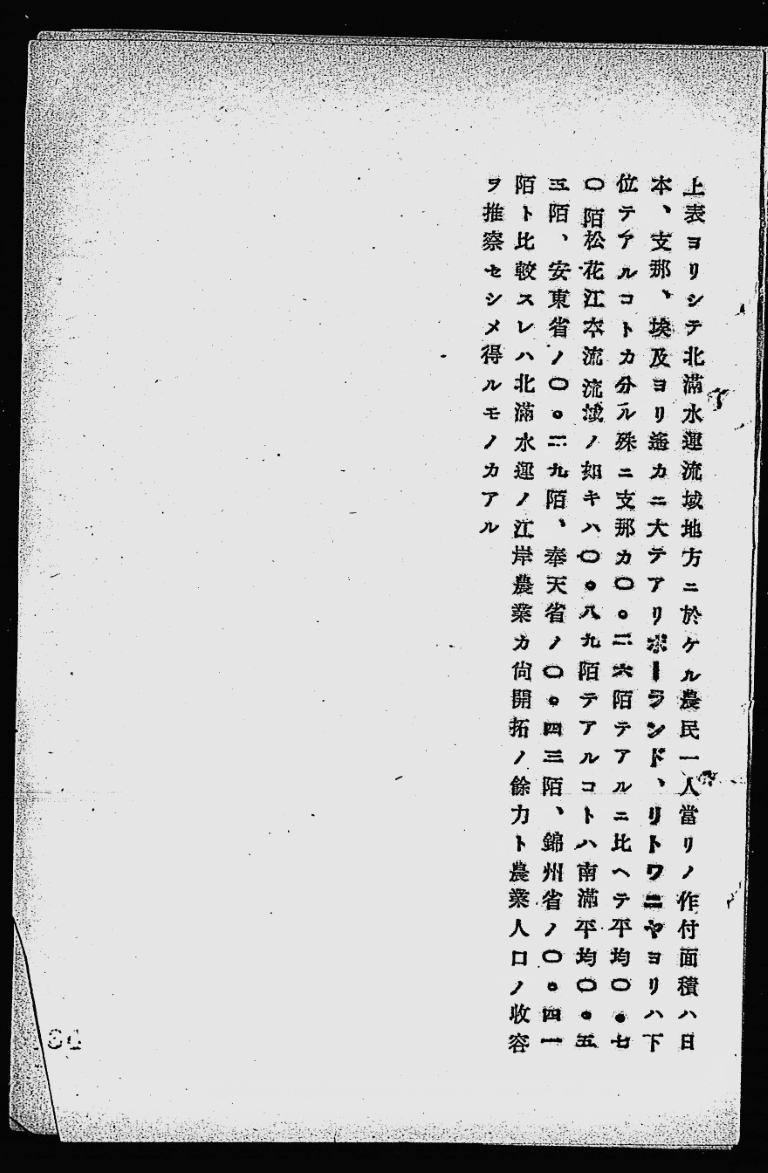 上表ヨリシテ北滿水運流域地方ニ於ケル農民一人當リノ作付面積ハ日
本、支那、埃及ヨリ遙カニ大テアリポーランド、リトワニヤヨリハ下
位テアルコトカ分ル殊ニ支那カ〇。二六陌テアルニ比ヘテ平均〇。七
〇陌松花江本流流域ノ如キハ〇。八九陌テアルコトハ南滿平均〇。五
三陌、安東省ノ〇。二九陌、奉天省ノ〇。四三陌、錦州省ノ〇。四一
陌ト比較スレハ北滿水運ノ江岸農業カ尙開拓ノ餘力ト農業人口ノ收容
ヲ推察セシメ得ルモノカアル
64